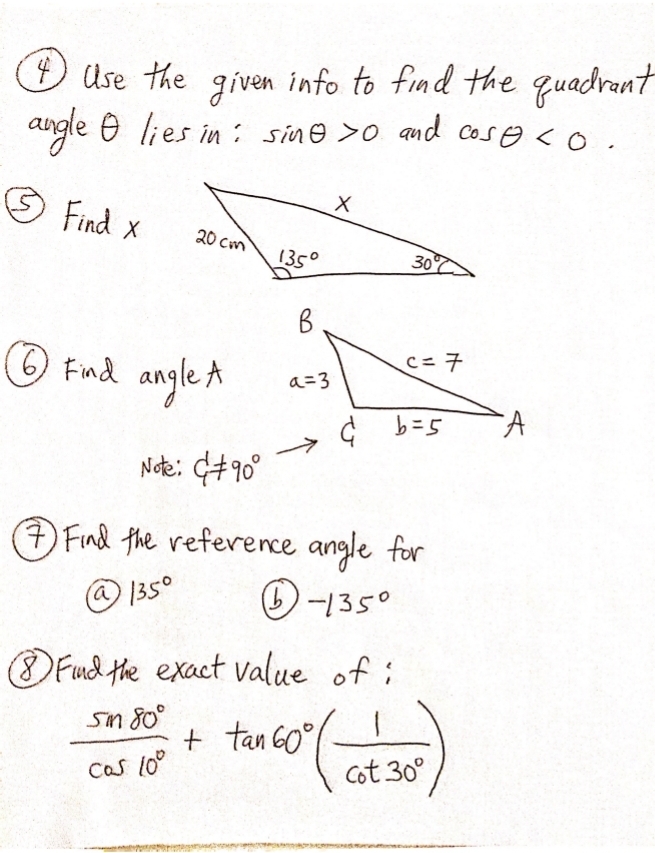 ④ Use the given info to find the quadrant
angle θ lies in : sinθ >0 and cosθ < 0 .
⑤ Find x
x
20 cm
135°
30°
⑥ Find angle A
B
c= 7
a=3
C
b=5
A
Note: C≠90°
⑦ Find the reference angle for
ⓐ 135°
ⓑ -135°
⑧ Find the exact value of :
sin 80° / cos 10° + tan 60° ( 1 / cot 30° )